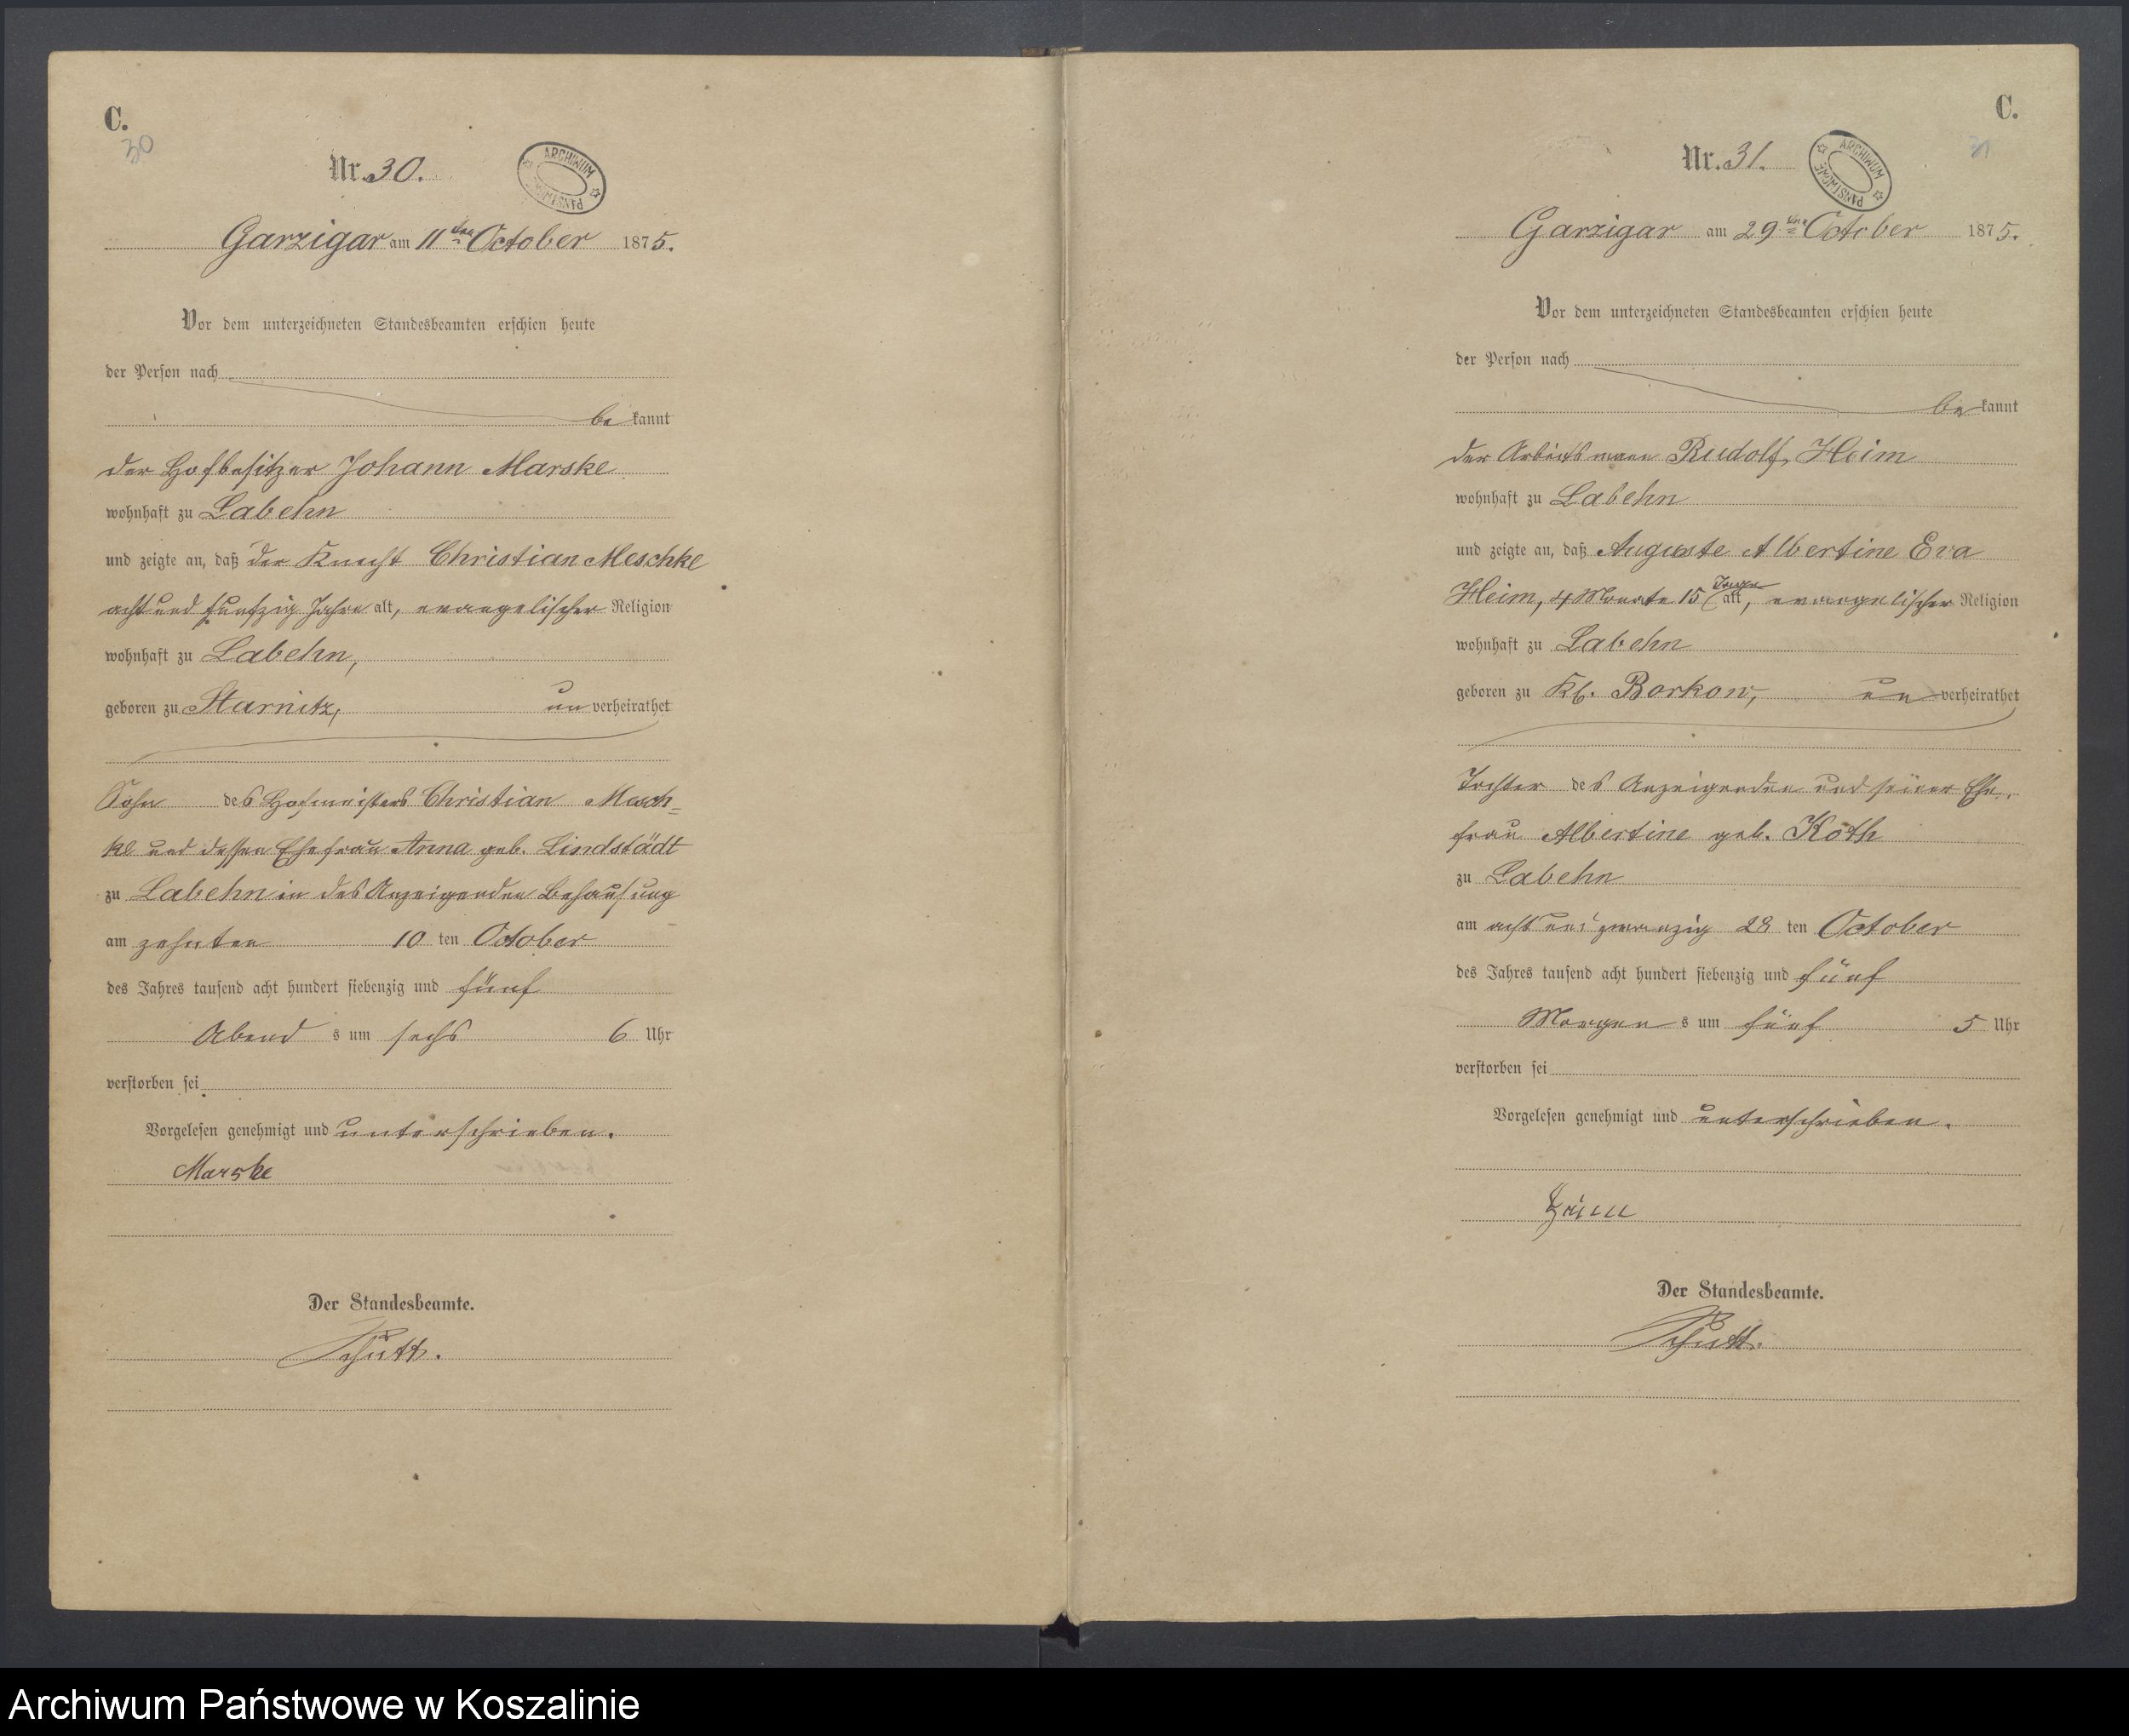 C.
30
Nr. 30.
ARCHIWUM PAŃSTWOWE
Garzigar am 11ten October 1875.
Vor dem unterzeichneten Standesbeamten erschien heute
der Person nach
be kannt
der Hofbesitzer Johann Marske
wohnhaft zu Labehn
und zeigte an, daß der Knecht Christian Meschke
acht und funfzig Jahre alt, evangelischer Religion
wohnhaft zu Labehn,
geboren zu Starnitz, un verheirathet
Sohn des Hofmeisters Christian Mesch=
ke und dessen Ehefrau Anna geb. Lindstädt
zu Labehn in des Anzeigenden Behausung
am zehnten 10 ten October
des Jahres tausend acht hundert siebenzig und fünf
Abend s um sechs 6 Uhr
verstorben sei
Vorgelesen genehmigt und unterschrieben.
Marske
Der Standesbeamte.
Schütt.
C.
31
Nr. 31.
ARCHIWUM PAŃSTWOWE
Garzigar am 29ten October 1875.
Vor dem unterzeichneten Standesbeamten erschien heute
der Person nach
be kannt
der Arbeitsmann Rudolf Heim
wohnhaft zu Labehn
und zeigte an, daß Auguste Albertine Eva
Heim, 4 Monate 15 Tage alt, evangelischer Religion
wohnhaft zu Labehn
geboren zu Kl. Borkow, un verheirathet
Tochter des Anzeigenden und seiner Ehe-
frau Albertine geb. Koth
zu Labehn
am acht und zwanzig 28 ten October
des Jahres tausend acht hundert siebenzig und fünf
Morgen s um fünf 5 Uhr
verstorben sei
Vorgelesen genehmigt und unterschrieben.
Heim
Der Standesbeamte.
Schütt.
Archiwum Państwowe w Koszalinie